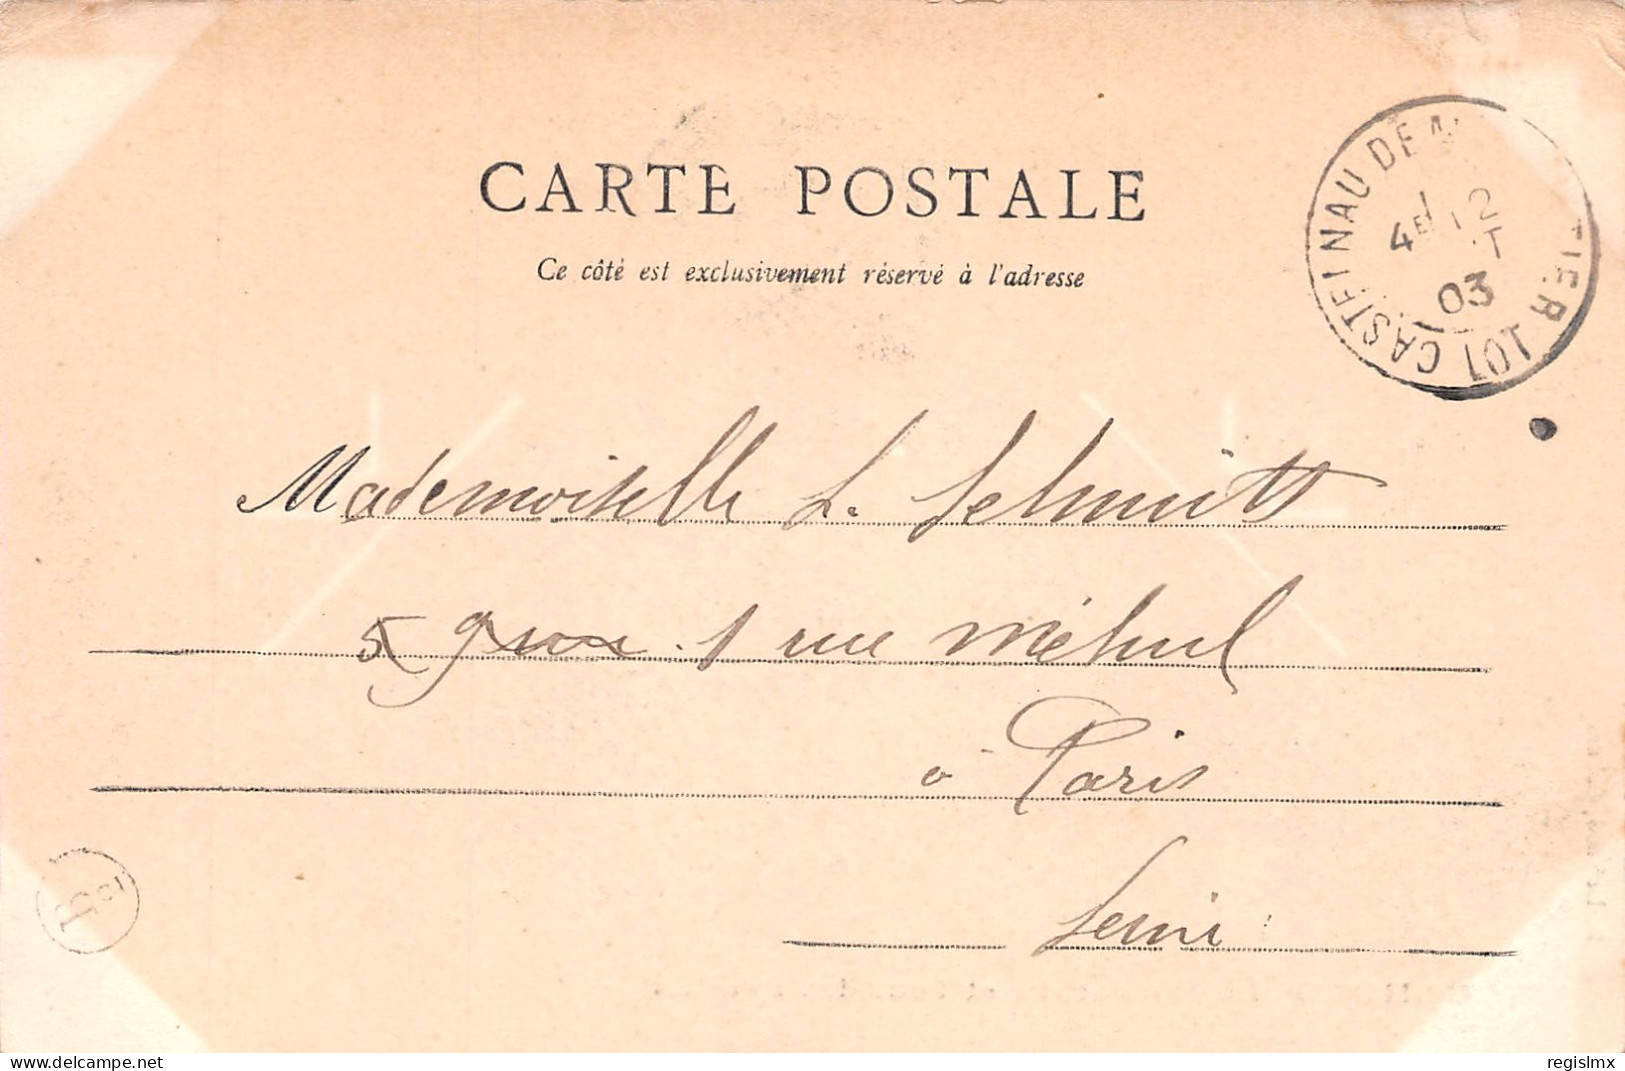 CARTE POSTALE
Ce côté est exclusivement réservé à l'adresse
CASTELNAU DE M TIER LOT
4E 12
03
Mademoiselle L. Schmitt
5 1 rue Méhul
à Paris
Seine
www.delcampe.net
regislmx